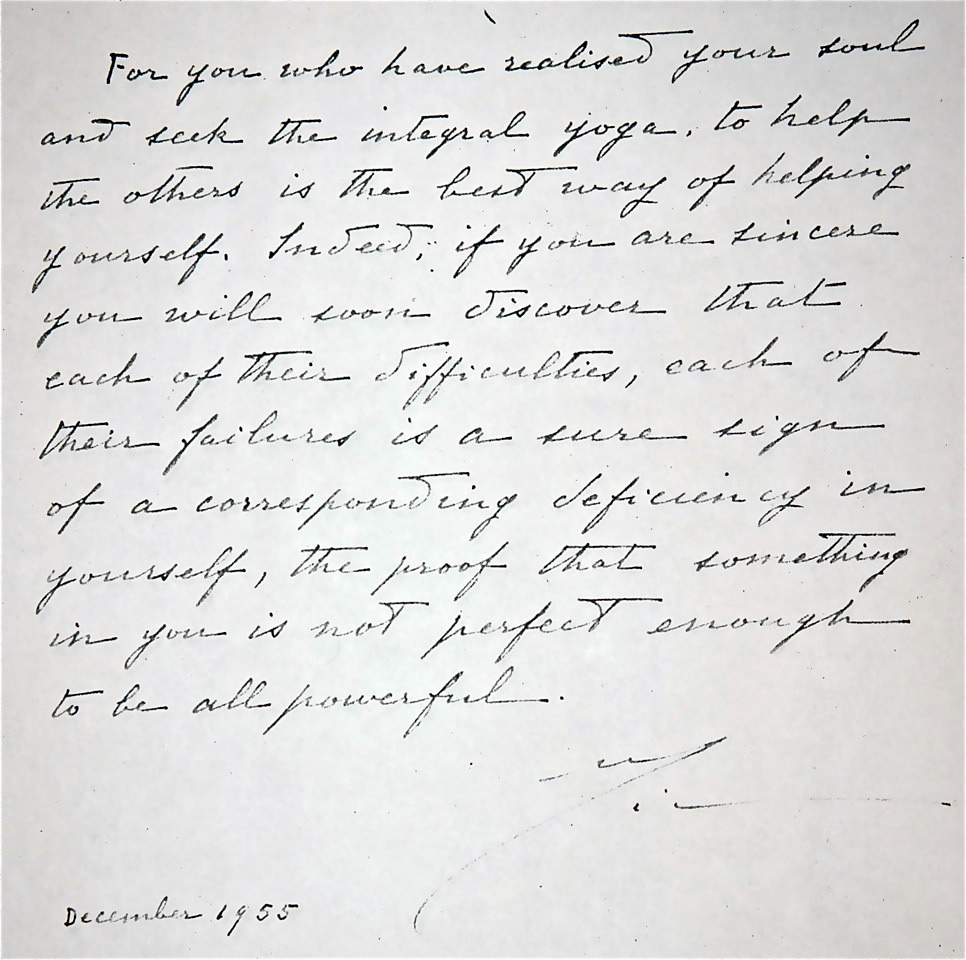 For you who have realised your soul
and seek the integral yoga, to help
the others is the best way of helping
yourself. Indeed, if you are sincere
you will soon discover that
each of their difficulties, each of
their failures is a sure sign
of a corresponding deficiency in
yourself, the proof that something
in you is not perfect enough
to be all powerful.
December 1955